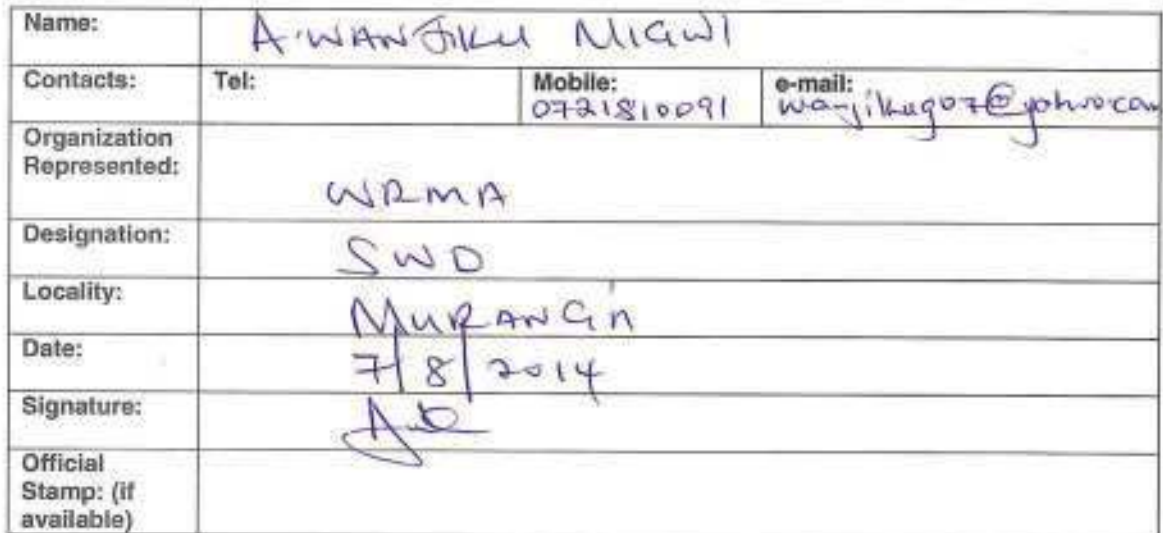 Name: A. WANJIKU MIGWI
Contacts: Tel: Mobile: e-mail:
0721810091 wanjikugo7@yahoo.com
Organization
Represented:
WRMA
Designation: SWD
Locality: MURANG'A
Date: 7/8/2014
Signature:
Official
Stamp: (if
available)